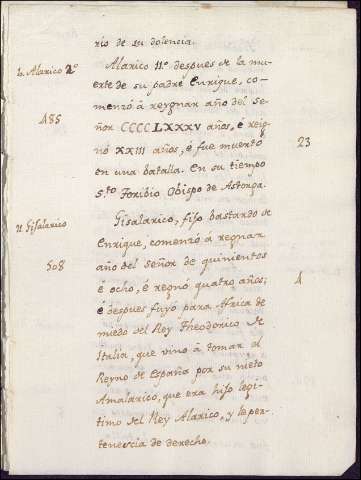 rio de su dolencia.
L. Alarico 2º
Alarico 11.º despues de la mu-
erte de su padre Enrique, co-
menzó á reygnar año del Se-
485
ñor CCCC LXXXV años, é reig-
nó XXIII años, é fue muerto
23
en una batalla. En su tiempo
S.to Toribio Obispo de Astorga.
Gisalarico
Gisalarico, fijo bastardo de
Enrique, comenzó á regnar
508
año del Señor de quinientos
é ocho, é regnó quatro años;
4
é despues fuyó para Africa de
miedo del Rey Theodorico de
Italia, que vino á tomar el
Reyno de España por su nieto
Amalarico, que era hijo legi-
timo del Rey Alarico, y le per-
tenescia de derecho.